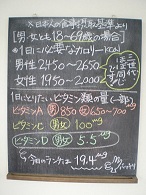 ※日本人の食事摂取基準より
[男・女とも18〜69歳の場合]
1日に必要なカロリーkcal
男性 2450〜2650
女性 1950〜2000
1日にとりたいビタミン類の量(一部)
ビタミンA 男850 女650〜700 mg
ビタミンC 男女 100 mg
ビタミンD 男女 5.5
今日のランチは 19.4